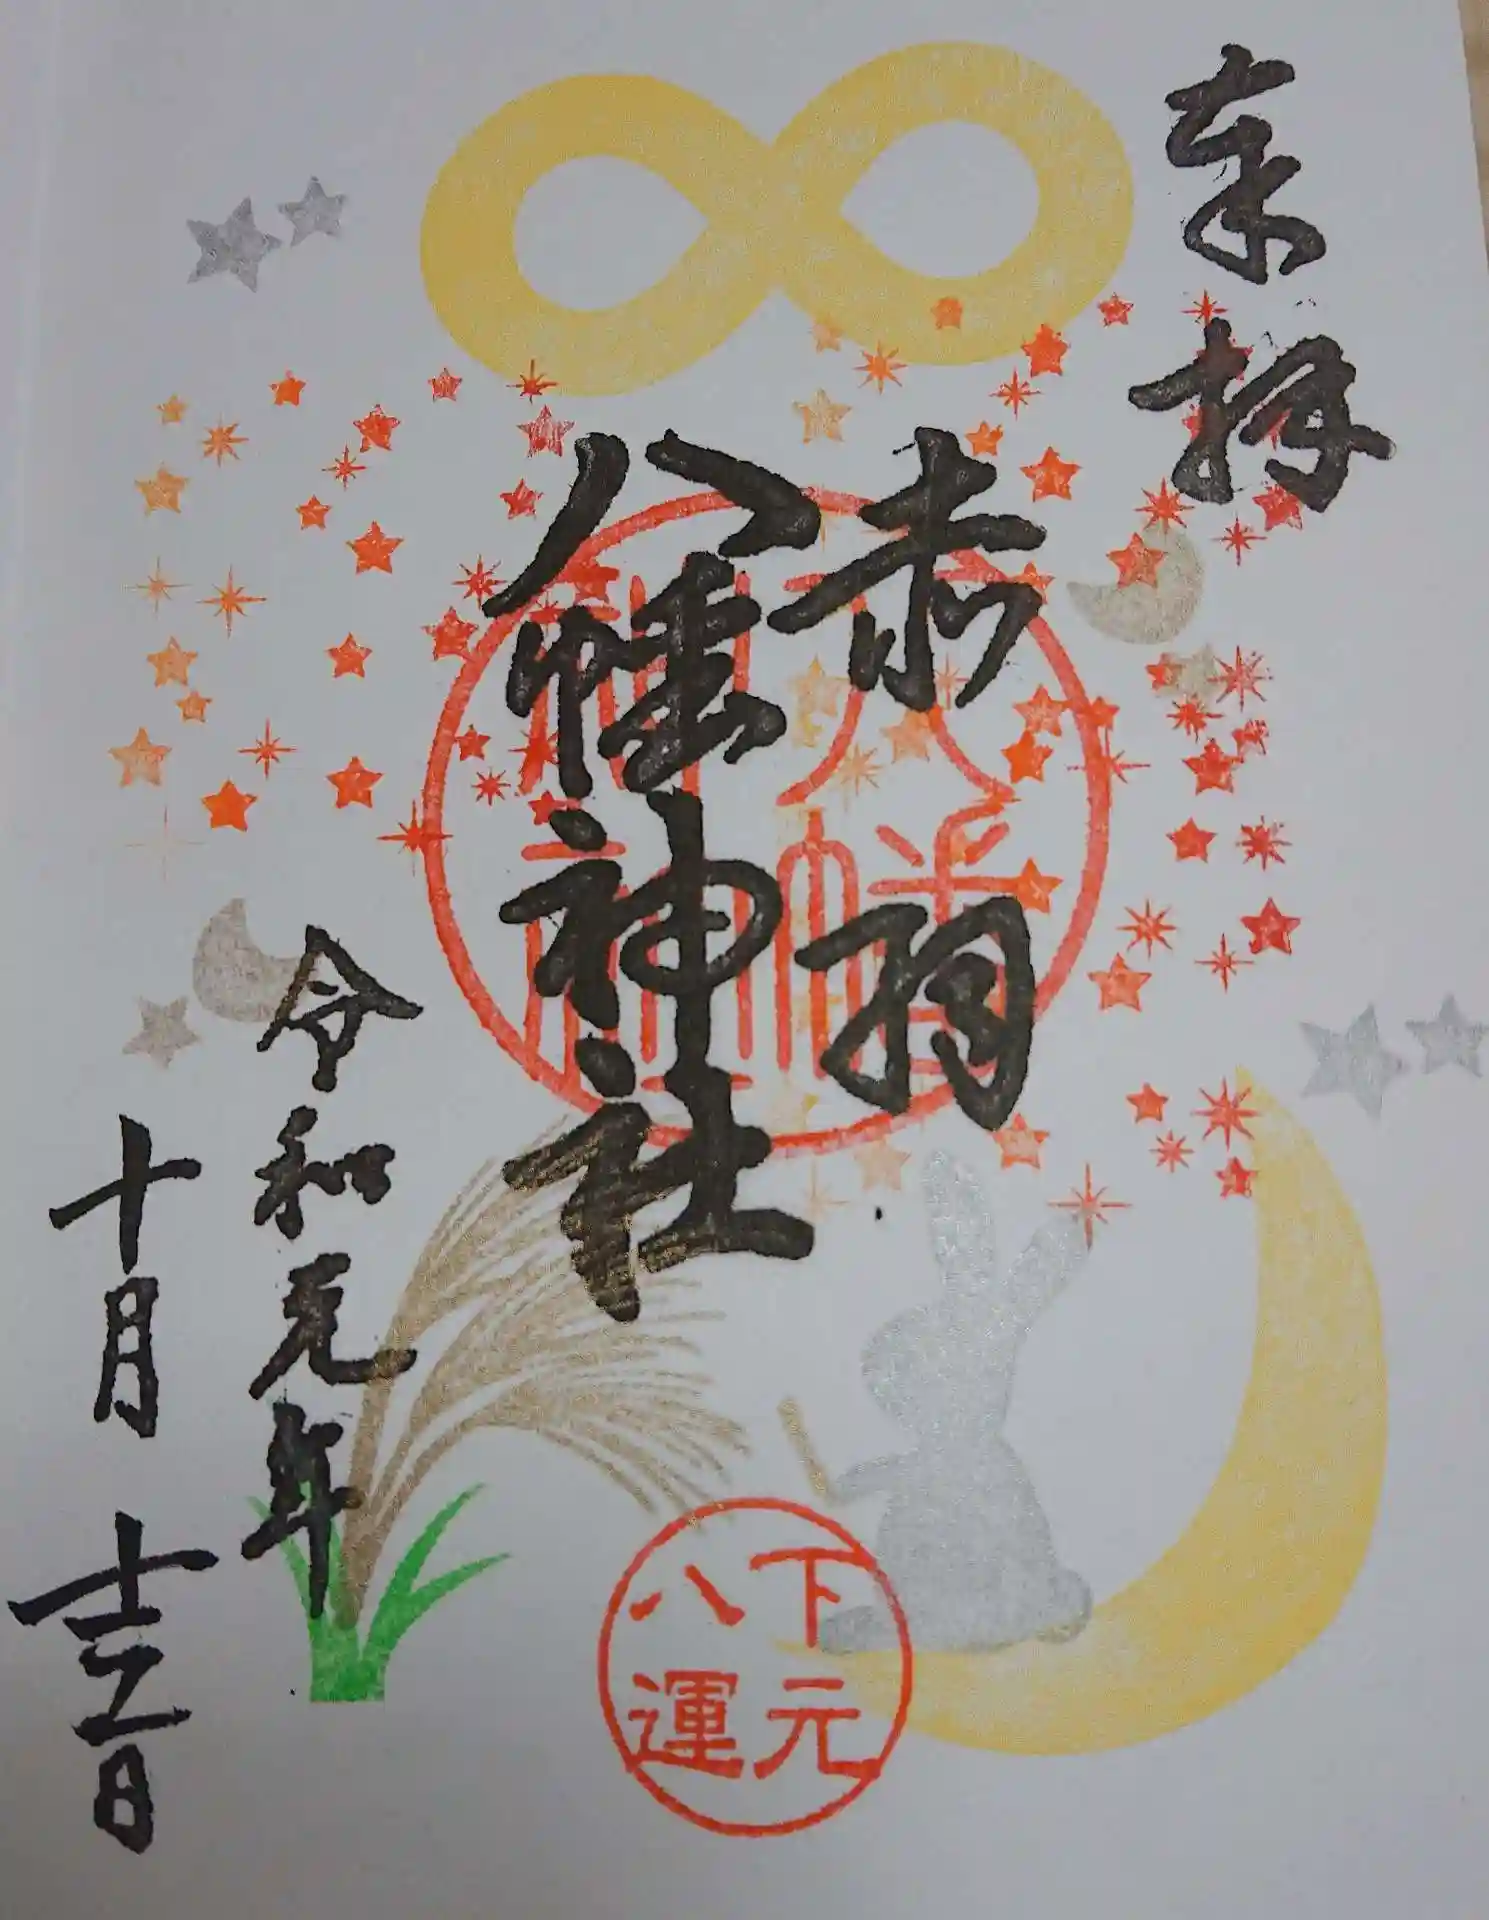 奉拝
赤羽
八幡神社
令和元年
十月十二日
八幡
神社
下元
八運